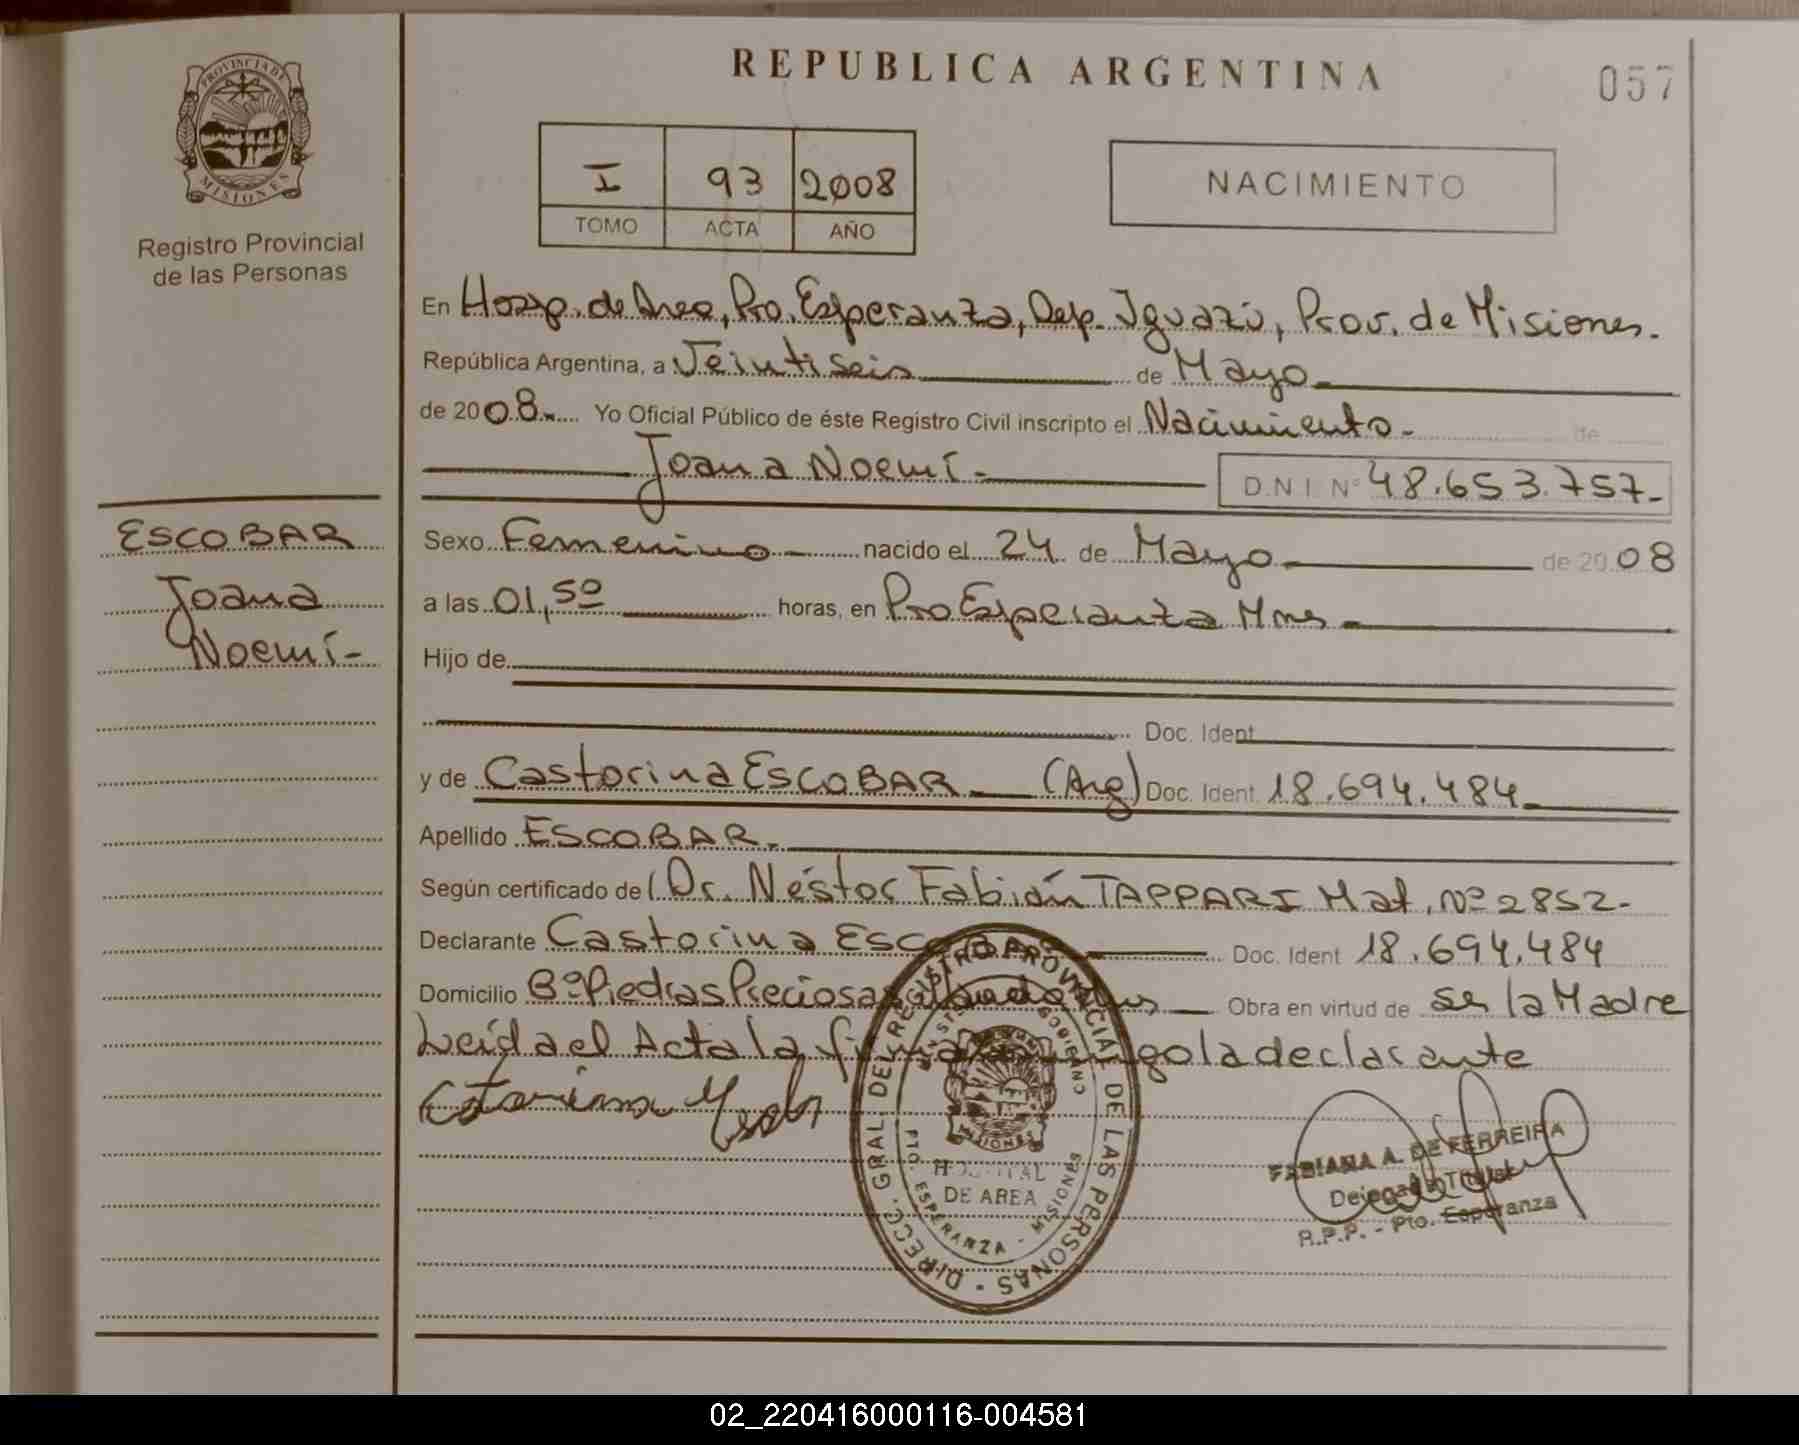 REPUBLICA ARGENTINA
057
PROVINCIA DE
MISIONES
Registro Provincial
de las Personas
I 93 2008
TOMO ACTA AÑO
NACIMIENTO
En Hosp. de Area, Pto. Esperanza, Dep. Iguazú, Prov. de Misiones.
República Argentina, a Veintiseis de Mayo
de 2008 Yo Oficial Público de éste Registro Civil inscripto el Nacimiento - de
Joana Noemí - D.N.I. Nº 48.653.757-
ESCOBAR
Joana
Noemí-
Sexo Femenino nacido el 24 de Mayo de 2008
a las 01,50 horas, en Pto Esperanza Mnes
Hijo de
Doc. Ident
y de Castorina ESCOBAR (Arg) Doc. Ident. 18.694.484
Apellido ESCOBAR.
Según certificado de Dr. Néstor Fabián TAPPARI Mat. Nº 2852-
Declarante Castorina ESCOBAR Doc. Ident 18.694.484
Domicilio Bº Piedras Preciosas Obra en virtud de ser la Madre
Leída el Acta la firma la declarante
DIRECC. GRAL. DEL REGISTRO PROVINCIAL DE LAS PERSONAS
MISIONES
HOSPITAL
DE AREA
PTO. ESPERANZA - MISIONES
FABIANA A. DE FERREIRA
Delegada Titular
R.P.P. - Pto. Esperanza
02_220416000116-004581